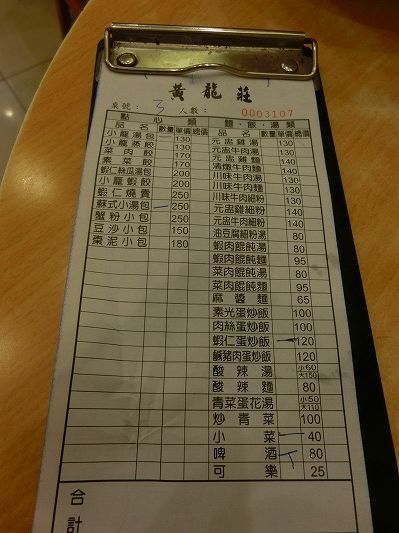 黃龍莊
桌號: 3 人數: 0003107
點心類
品名 數量 單價 總價
小籠湯包 一 130
小籠蒸餃 130
菜肉餃 170
素菜餃 170
蝦仁絲瓜湯包 200
小籠蝦餃 200
蝦仁燒賣 250
蘇式小湯包 一 250
蟹粉小包 250
豆沙小包 150
棗泥小包 180
麵·飯·湯類
品名 數量 單價 總價
元盅雞湯 130
元盅牛肉湯 130
元盅雞麵 140
清燉牛肉麵 140
川味牛肉湯 130
川味牛肉麵 130
川味牛肉細粉 130
元盅雞細粉 140
元盅牛肉細粉 140
油豆腐細粉湯 80
蝦肉餛飩湯 80
蝦肉餛飩麵 95
菜肉餛飩湯 80
菜肉餛飩麵 95
麻醬麵 65
素光蛋炒飯 100
肉絲蛋炒飯 100
蝦仁蛋炒飯 一 120
鹹豬肉蛋炒飯 120
酸辣湯 小60 大150
酸辣麵 80
青菜蛋花湯 小50 大110
炒青菜 100
小菜 一 40
啤酒 80
可樂 25
合計